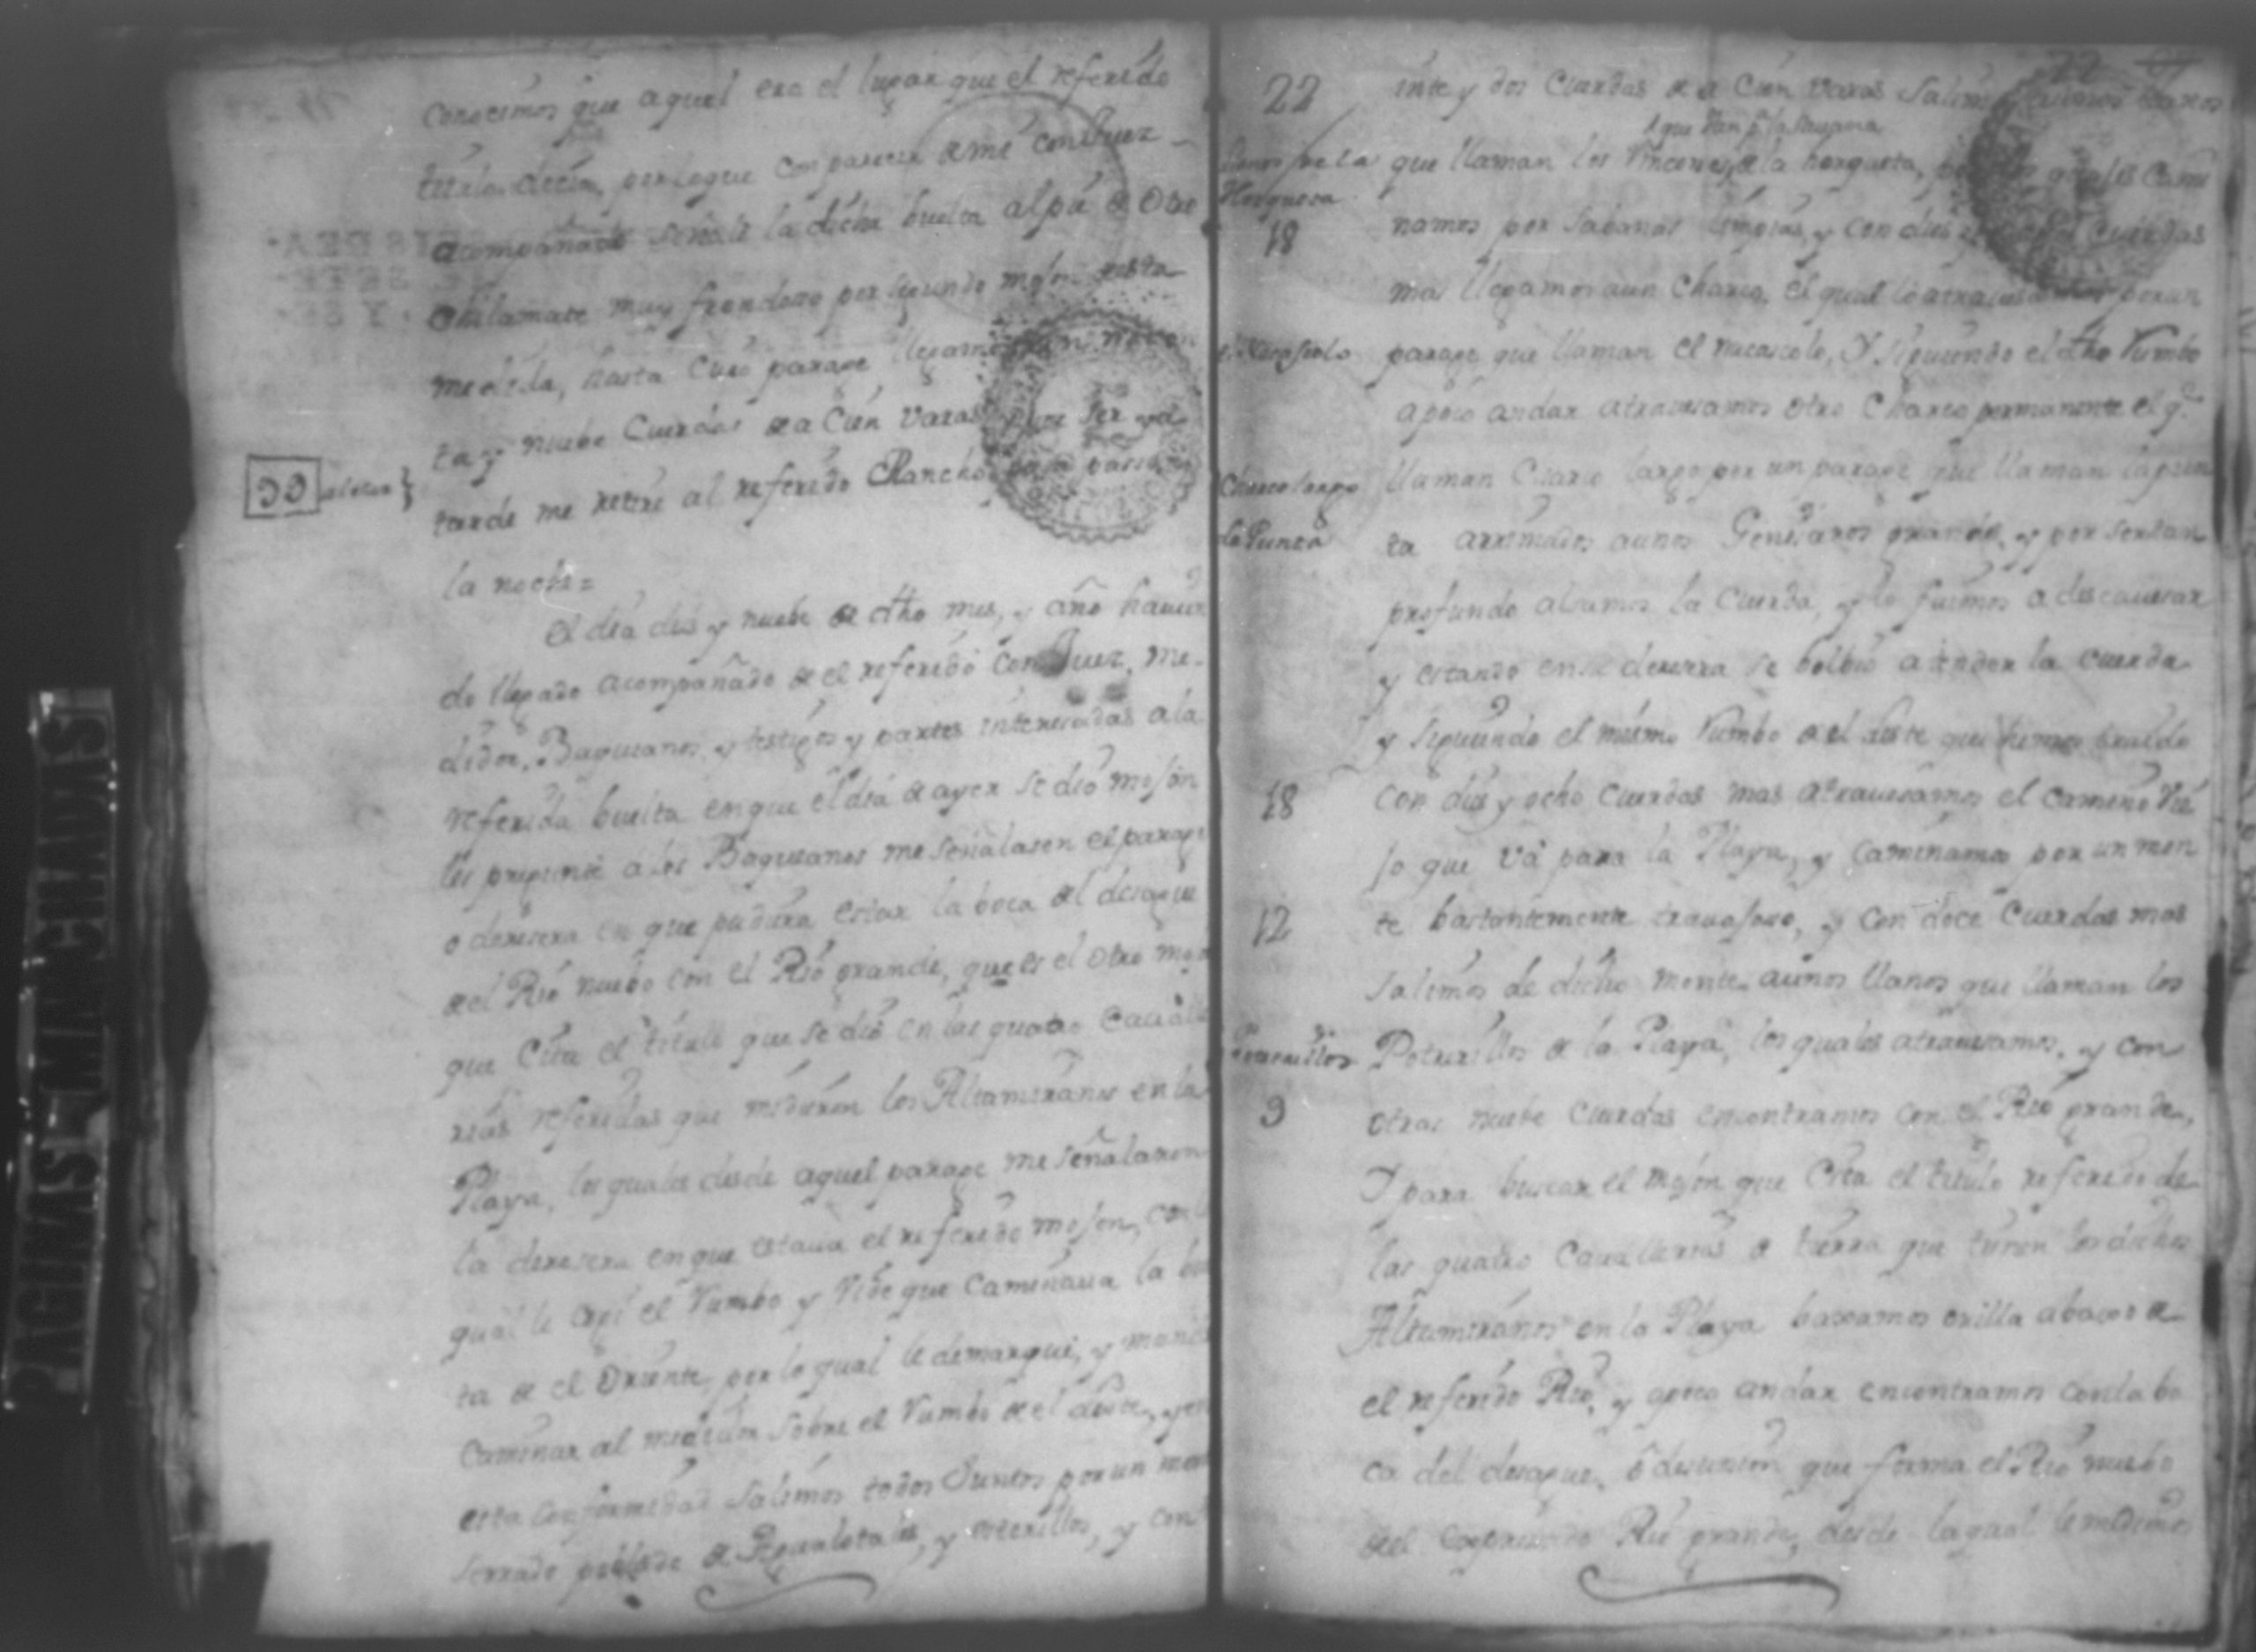 conocimos que aquel era el lugar que el referido
titulo decia, por lo que con parecer de mi conJuez
acompañado señalé la dicha buelta al pie de otro
chilamate muy frondozo por segundo mojon de esta
medida, hasta cuio parage llegamos con noven
ta y nuebe Cuerdas de a Cien Varas y por ser ya
99
tarde me retire al referido Rancho para pasar
la noche=
El dia dies y nuebe de dho mes, y año havien
do llegado acompañado de el referido Con Juez, me-
didor, Baquianos, y testigos y partes interezadas a la
referida buelta en que el dia de ayer se dio mojon
les pregunté a los Baquianos me señalasen el parage
o deresera en que pudiera estar la boca del desague
del Rio nuebo con el Rio grande, que es el otro mojon
que Cita el titulo que se dio en las quatro Cavalle
rias referidas que midieron los Altamiranos en la
Playa, los quales desde aquel parage me señalaron
la deresera en que estava el referido mojon, con lo
qual le cogi el Rumbo y Vide que Caminava la buel
ta de el Oriente, por lo qual le demarqué, y mandé
Caminar al medidor sobre el Rumbo de el Leste, y en
esta conformidad salimos todos Juntos por un monte
serrado poblado de Pigualotales, y esterillos, y con
22
inte y dos Cuerdas de a Cien Varas Salimos a unos llanos
que van pa la Savana
que llaman los Rincones de la horqueta, por los quales Cami
Llanos de la
Horqueta
namos por Sabanas limpias, y con dies y ocho Cuerdas
18
mas llegamos a un Charco, el qual lo atravesamos por un
parage que llaman el nacascolo, Y siguiendo el dho Rumbo
el Nacascolo
a poco andar atravesamos otro Charco permanente el qe
llaman Charco largo por un parage que llaman la pun
Charco largo
ta arrimados a unos Genisaros grandes, y por ser tan
la Punta
profundo alsamos la Cuerda, y lo fuimos a descavesar
y estando en su deresera se bolbió a tender la cuerda
y siguiendo el mismo Rumbo de el Leste que hemos traido
con dies y ocho cuerdas mas atravesamos el camino Vie
18
jo que va para la Playa, y caminamos por un mon
te bastantemente travajoso, y con doce Cuerdas mas
12
salimos de dicho monte a unos llanos que llaman los
Potrerillos de la Playa, los quales atravesamos, y con
Potrerillos
otras nuebe cuerdas encontramos con el Rio grande,
9
Y para buscar el mojon que Cita el titulo referido de
las quatro Cavallerias de tierra que tienen los dichos
Altamiranos en la Playa baxamos orilla abaxo de
el referido Rio, y a poco andar encontramos con la bo
ca del desague, ó desunion que forma el Rio nuebo
del expresado Rio grande, desde la qual le medimos
PAGINAS MANCHADAS